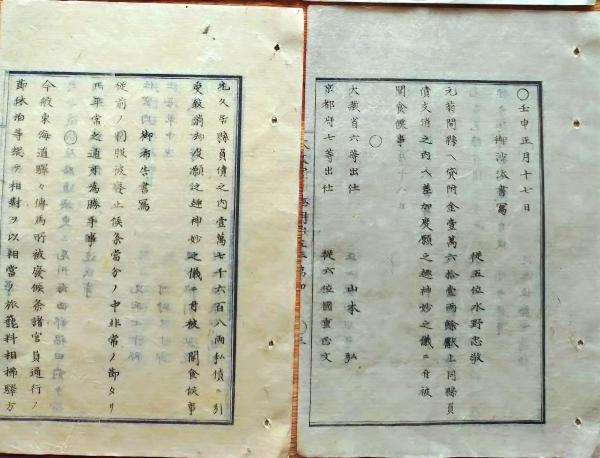 ○壬申正月十七日
御沙汰書寫
從五位水野忠敬
元菊間縣ヘ貸附金壹萬六拾壹兩餘獻上同縣員
債支消之内ヘ差加度願之趣神妙之儀ニ付被
聞食候事
○
大藏省六等出仕
山本 弘
京都府七等出仕
從六位國重正文
元久居縣員債之内壹萬七千六百八兩私債ニ引
受教消却度願之趣神妙之儀ニ付被 聞食候事
御布告書寫
從前ノ制服被廢止候条當分ノ中非常ノ節タリ
圧平常之通用爲勝手事
○
今般東海道驛々傳馬所被廢候条諸官員通行ノ
節休泊等總テ相對ヲ以相當ノ旅籠料相拂驛方